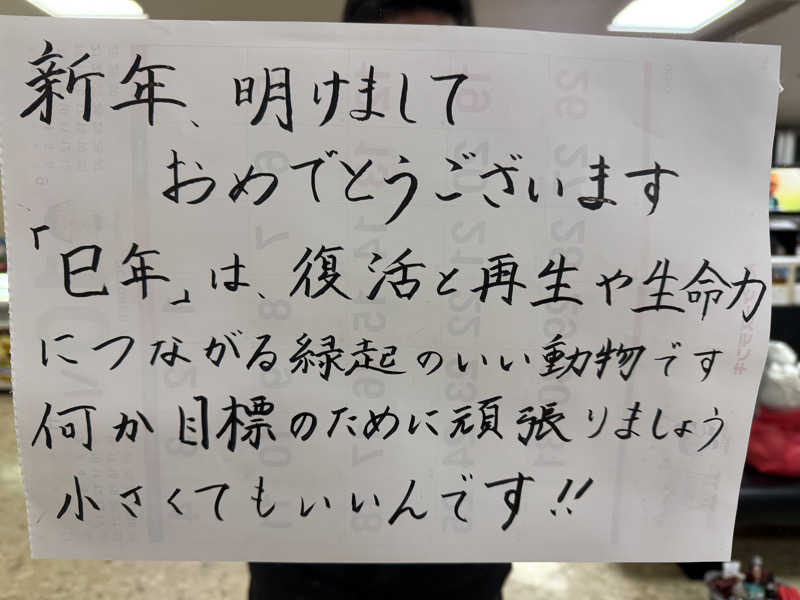 新年、明けまして
おめでとうございます
「巳年」は、復活と再生や生命力
につながる縁起のいい動物です
何か目標のために頑張りましょう
小さくてもいいんです!!